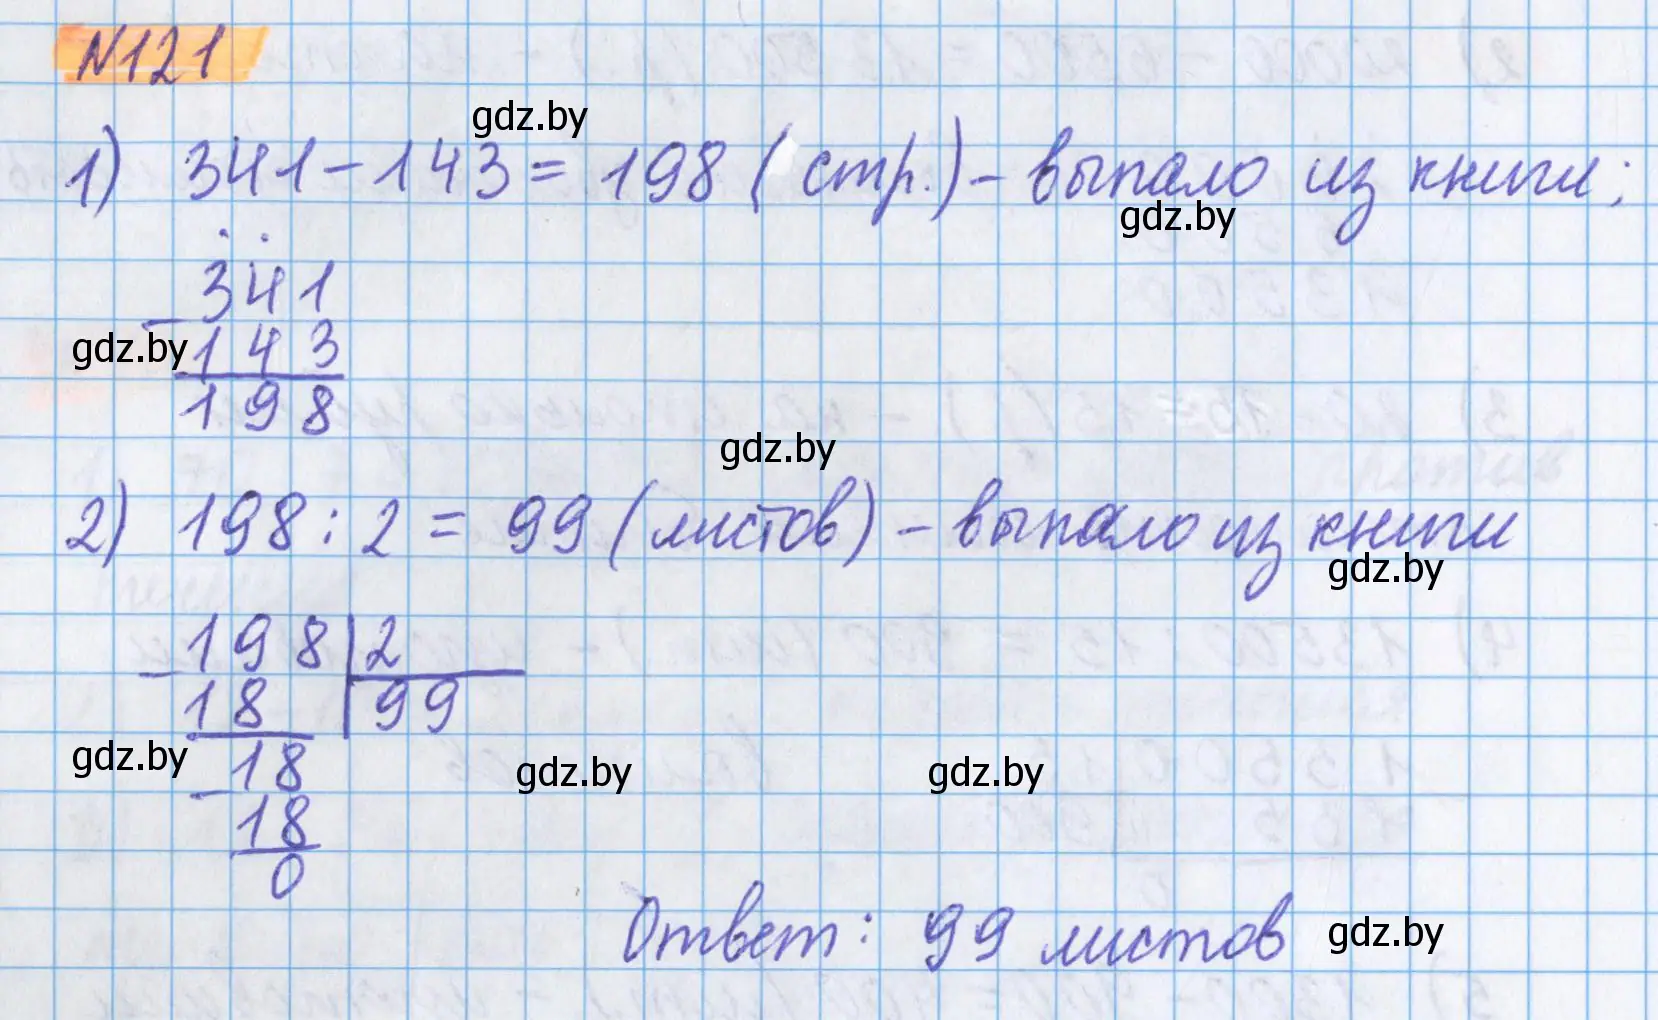 N121
gdz.by
1) 341 - 143 = 198 (стр.) - выпало из книги;
gdz.by
341
- 143
gdz.by
198
gdz.by
2) 198 : 2 = 99 (листов) - выпало из книги
gdz.by
- 198 | 2
18 | 99
gdz.by
- 18
gdz.by
gdz.by
18
0
Ответ: 99 листов
gdz.by